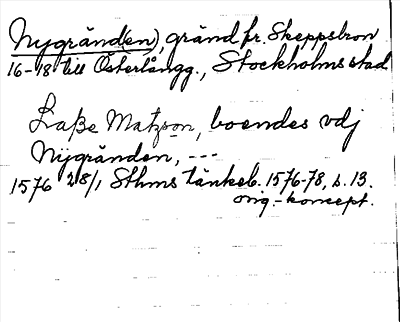 Nygränden), gränd fr. Skeppsbron
16-18 till Österlångg., Stockholms stad
Laße Matzson, boendes vdj
Nÿgränden, ---
1576 28/1 Sthms tänkeb. 1576-78, s. 13.
orig.-koncept.